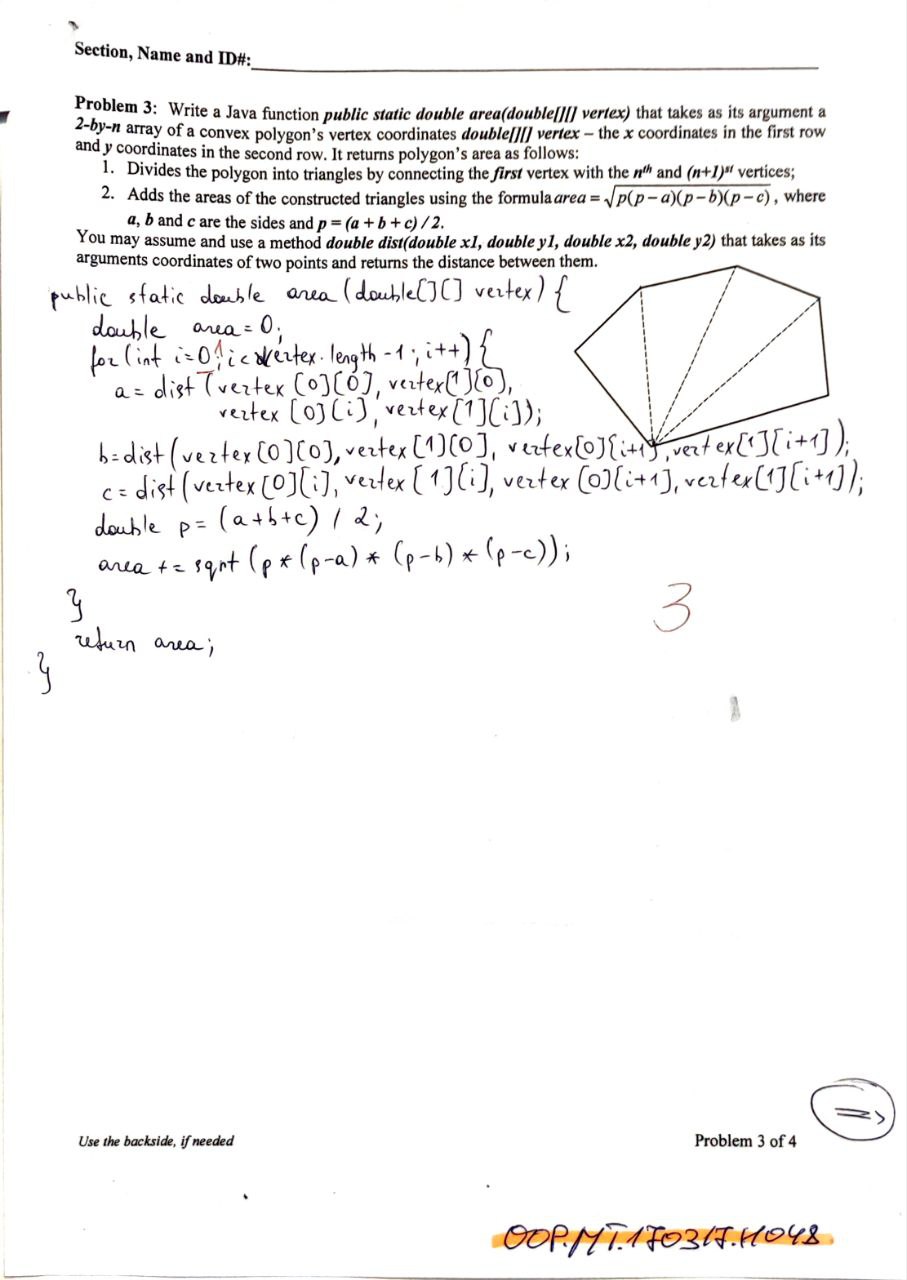 Section, Name and ID#:
Problem 3: Write a Java function public static double area(double[][] vertex) that takes as its argument a
2-by-n array of a convex polygon's vertex coordinates double[][] vertex – the x coordinates in the first row
and y coordinates in the second row. It returns polygon's area as follows:
1. Divides the polygon into triangles by connecting the first vertex with the nth and (n+1)st vertices;
2. Adds the areas of the constructed triangles using the formula area = √p(p−a)(p−b)(p−c), where
a, b and c are the sides and p = (a + b + c) / 2.
You may assume and use a method double dist(double x1, double y1, double x2, double y2) that takes as its
arguments coordinates of two points and returns the distance between them.
public static double area (double[][] vertex) {
double area = 0;
for (int i=0; i< vertex.length -1; i++) {
a = dist (vertex [0][0], vertex[1][0],
vertex [0][i], vertex[1][i]);
b=dist (vertex [0][0], vertex [1][0], vertex[0][i+1], vertex[1][i+1]);
c = dist (vertex [0][i], vertex [1][i], vertex [0][i+1], vertex[1][i+1]);
double p = (a+b+c) / 2;
area += sqrt (p * (p-a) * (p-b) * (p-c));
}
3
return area;
}
=>
Use the backside, if needed
Problem 3 of 4
OOP.MT.170317.H048